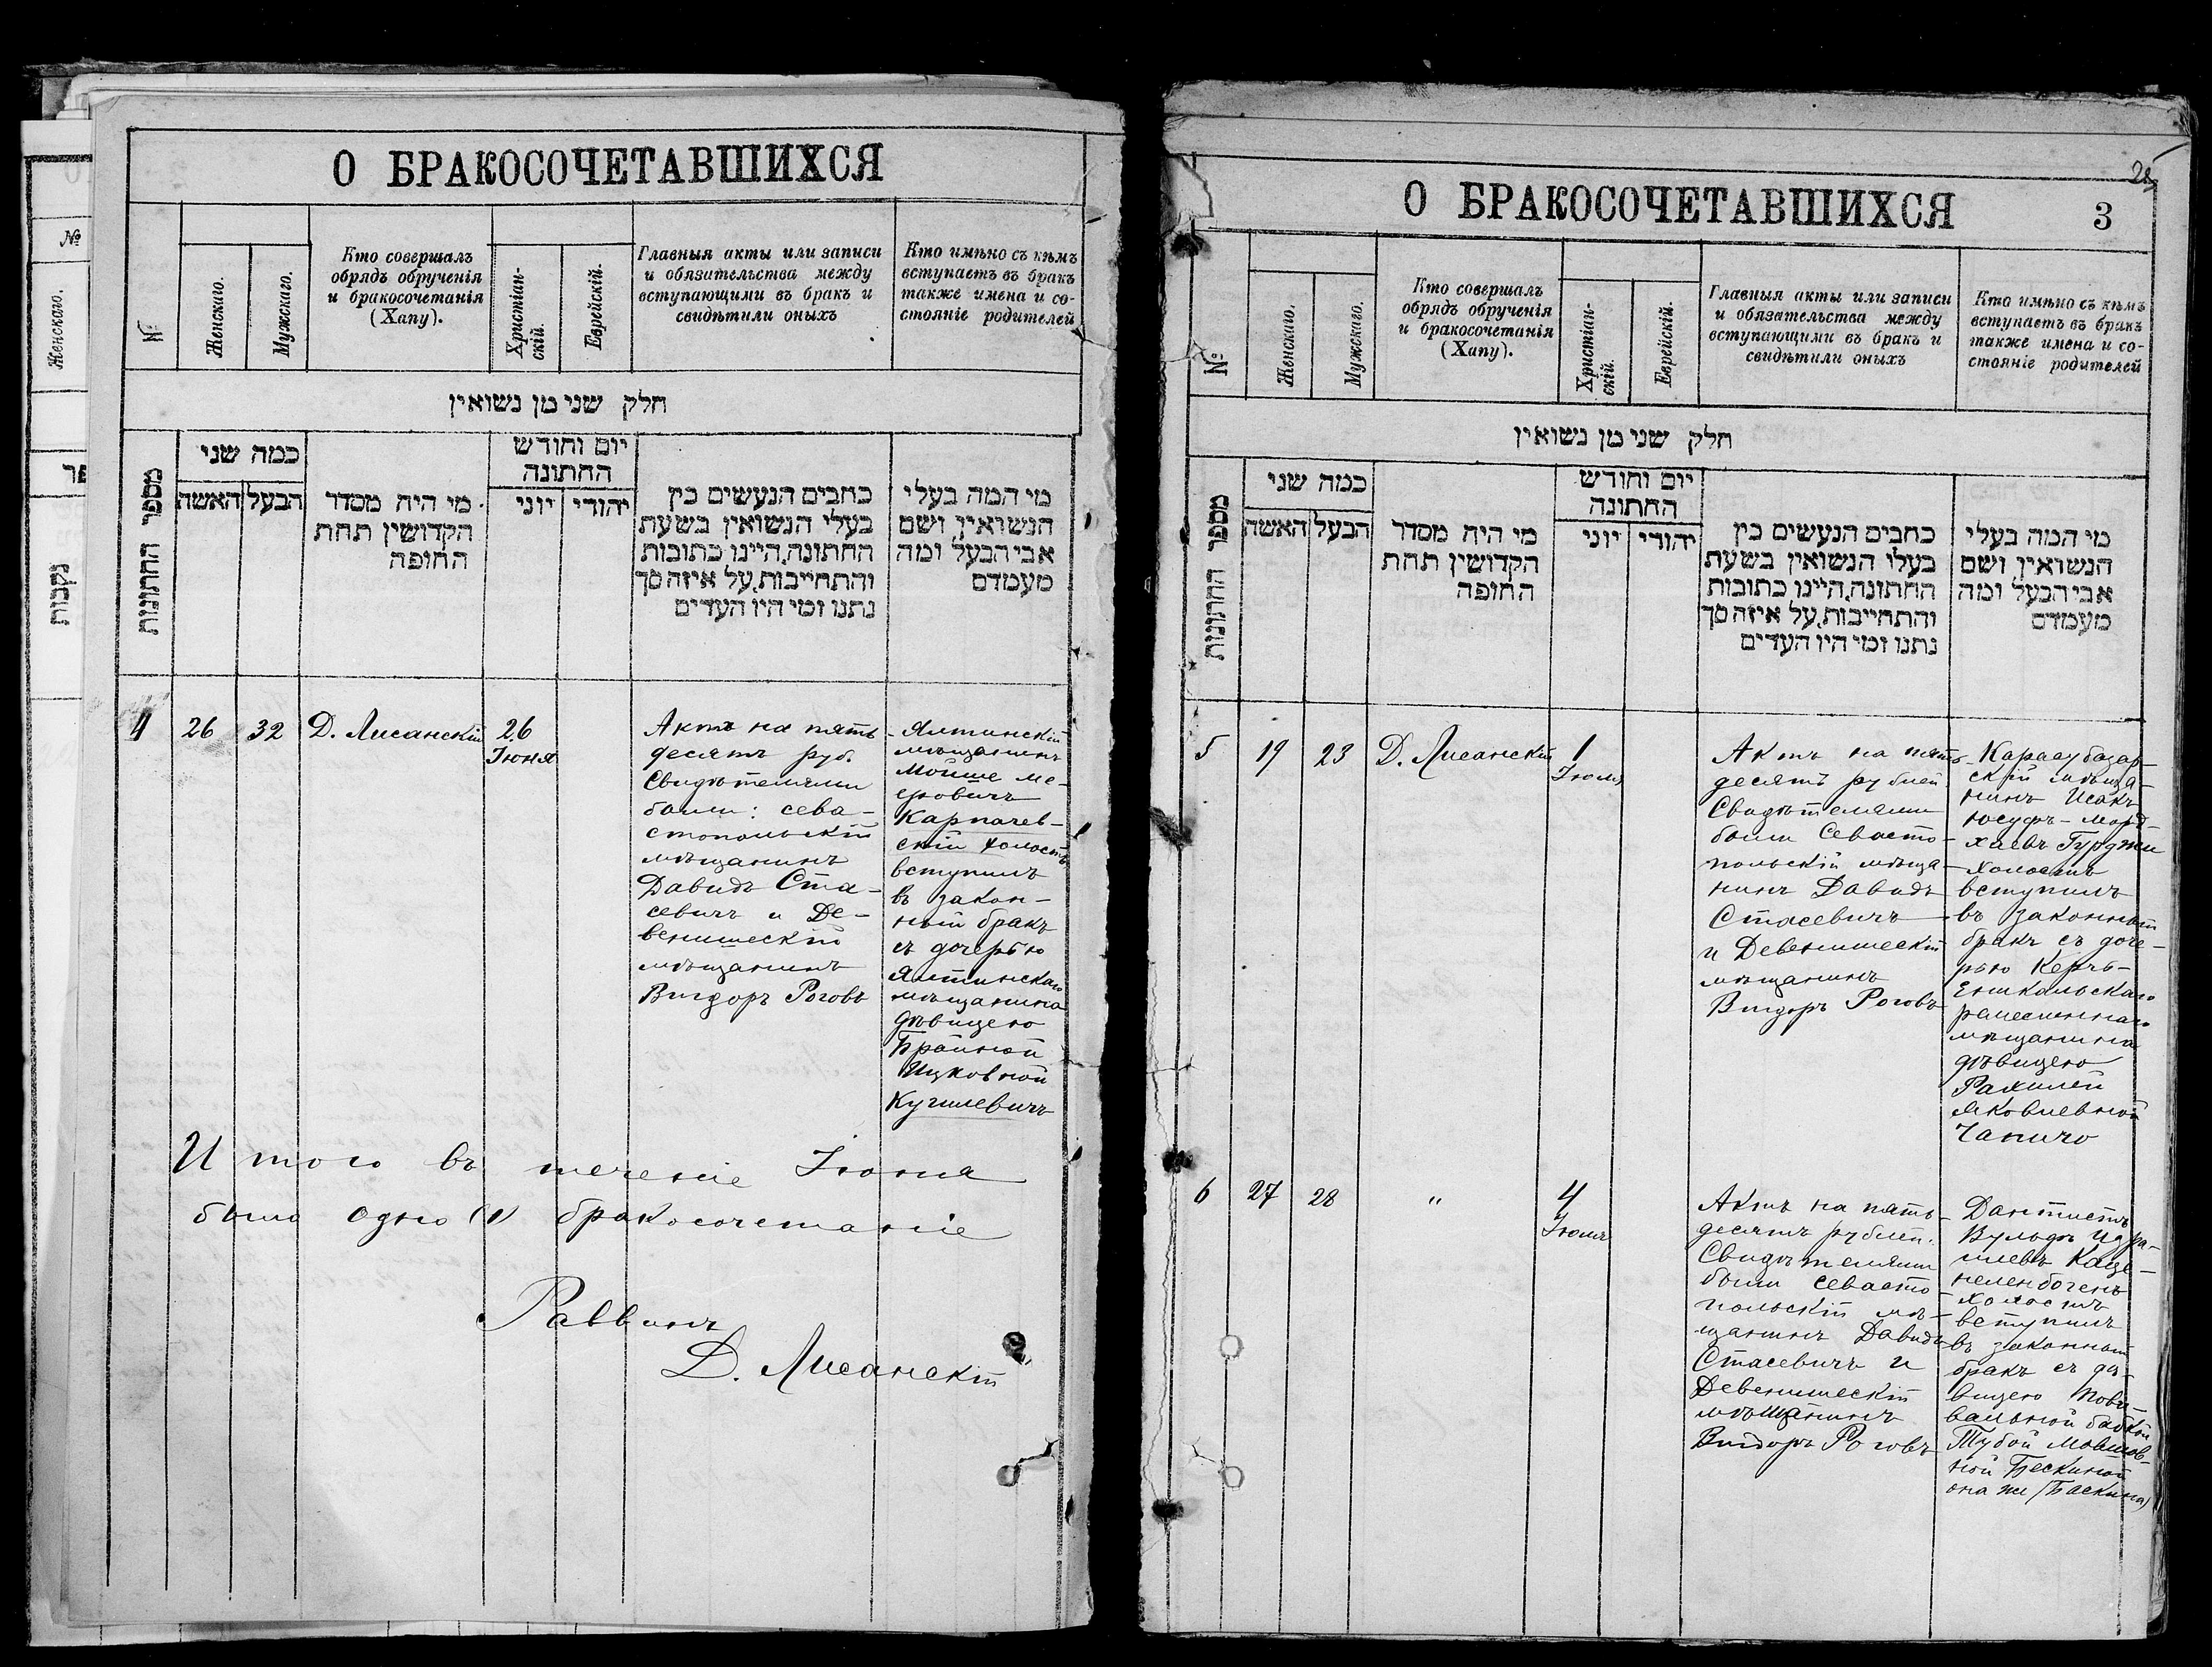 О БРАКОСОЧЕТАВШИХСЯ
№
Женскаго.
Мужскаго.
Кто совершалъ
обрядъ обрученія
и бракосочетанія
(Хапу).
Христіан-
скій.
Еврейскій.
Главныя акты или записи
и обязательства между
вступающими въ бракъ и
свидѣтили оныхъ
Кто имѣно съ кѣмъ
вступаетъ въ бракъ
также имена и со-
стояніе родителей
חלק שני מן נשואין
מספר החתונות
כמה שני
האשה
הבעל
מי היה מסדר
הקדושין תחת
החופה
יום וחודש
החתונה
יוני
יהודי
כתבים הנעשים בין
בעלי הנשואין בשעת
החתונה, היינו כתובות
והתחייבות, על איזה סך
נתנו ומי היו העדים
מי המה בעלי
הנשואין ושם
אבי הבעל ומה
מעמדם
4
26
32
Д. Лисанскій
26
Іюня
Актъ на пять-
десятъ руб.
Свидѣтелями
были: сева-
стопольскій
мѣщанинъ
Давидъ Ста-
севичъ и Де-
венишескій
мѣщанинъ
Вигдоръ Роговъ
Ялтинскій
мѣщанинъ
Мойше Ме-
еровичъ
Карпачев-
скій холостъ
вступилъ
въ закон-
ный бракъ
съ дочерью
Ялтинскаго
мѣщанина
дѣвицею
Брайной
Ицковной
Кугилевичъ
Итого въ теченіе Іюня
было одно (1) бракосочетаніе
Раввинъ
Д. Лисанскій
№
Женскаго.
נקבות
25
О БРАКОСОЧЕТАВШИХСЯ
3
№
Женскаго.
Мужскаго.
Кто совершалъ
обрядъ обрученія
и бракосочетанія
(Хапу).
Христіан-
скій.
Еврейскій.
Главныя акты или записи
и обязательства между
вступающими въ бракъ и
свидѣтили оныхъ
Кто имѣно съ кѣмъ
вступаетъ въ бракъ
также имена и со-
стояніе родителей
חלק שני מן נשואין
מספר החתונות
כמה שני
האשה
הבעל
מי היה מסדר
הקדושין תחת
החופה
יום וחודש
החתונה
יוני
יהודי
כתבים הנעשים בין
בעלי הנשואין בשעת
החתונה, היינו כתובות
והתחייבות, על איזה סך
נתנו ומי היו העדים
מי המה בעלי
הנשואין ושם
אבי הבעל ומה
מעמדם
5
19
23
Д. Лисанскій
1
Іюля
Актъ на пять-
десятъ рублей
Свидѣтелями
были Севасто-
польскій мѣща-
нинъ Давидъ
Стасевичъ
и Девенишескій
мѣщанинъ
Вигдоръ Роговъ
Карасубазар-
скій мѣща-
нинъ Исакъ
Юсуфъ-Морд-
хаевъ Гурджи
холостъ
вступилъ
въ законный
бракъ съ доче-
рью Керчь-
Еникальскаго
ремесленнаго
мѣщанина
дѣвицею
Рахилей
Яковлевной
Чапичо
6
27
28
"
4
Іюля
Актъ на пять-
десятъ рублей.
Свидѣтелями
были Севасто-
польскій мѣ-
щанинъ Давидъ
Стасевичъ и
Девенишескій
мѣщанинъ
Вигдоръ Роговъ
Дантистъ
Вульфъ Изра-
илевъ Каце-
неленбогенъ
холостъ
вступилъ
въ законный
бракъ съ дѣ-
вицею Пови-
вальной бабкой
Тубой Мовшов-
ной Бескиной
она же (Баскина)